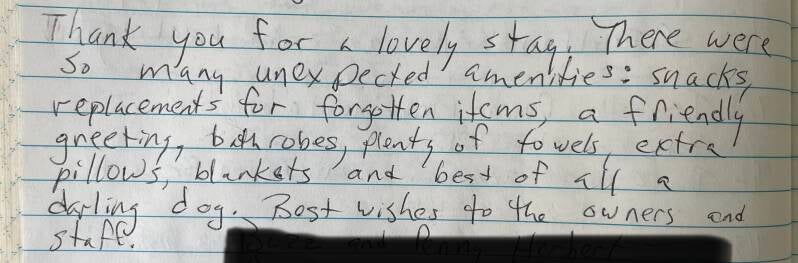 Thank you for a lovely stay. There were
so many unexpected amenities: snacks,
replacements for forgotten items, a friendly
greeting, bathrobes, plenty of towels, extra
pillows, blankets and best of all a
darling dog. Best wishes to the owners and
staff.